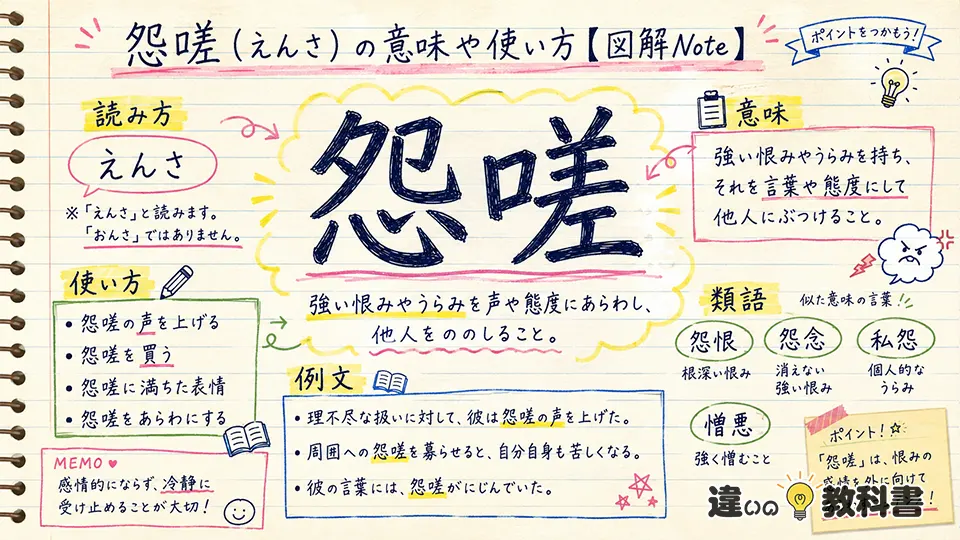 怨嗟(えんさ)の意味や使い方【図解Note】
ポイントをつかもう!
読み方
えんさ
※「えんさ」と読みます。
「おんさ」ではありません。
怨嗟
強い恨みやうらみを声や態度にあらわし、
他人をののしること。
意味
強い恨みやうらみを持ち、
それを言葉や態度にして
他人にぶつけること。
使い方
• 怨嗟の声を上げる
• 怨嗟を買う
• 怨嗟に満ちた表情
• 怨嗟をあらわにする
例文
• 理不尽な扱いに対して、彼は怨嗟の声を上げた。
• 周囲への怨嗟を募らせると、自分自身も苦しくなる。
• 彼の言葉には、怨嗟がにじんでいた。
類語
似た意味の言葉!!
怨恨
根深い恨み
怨念
消えない
強い恨み
私怨
個人的な
うらみ
憎悪
強く憎むこと
MEMO ♥
感情的にならず、冷静に
受け止めることが大切!
ポイント!☆
「怨嗟」は、恨みの
感情を外に向けて
!
違いの教科書